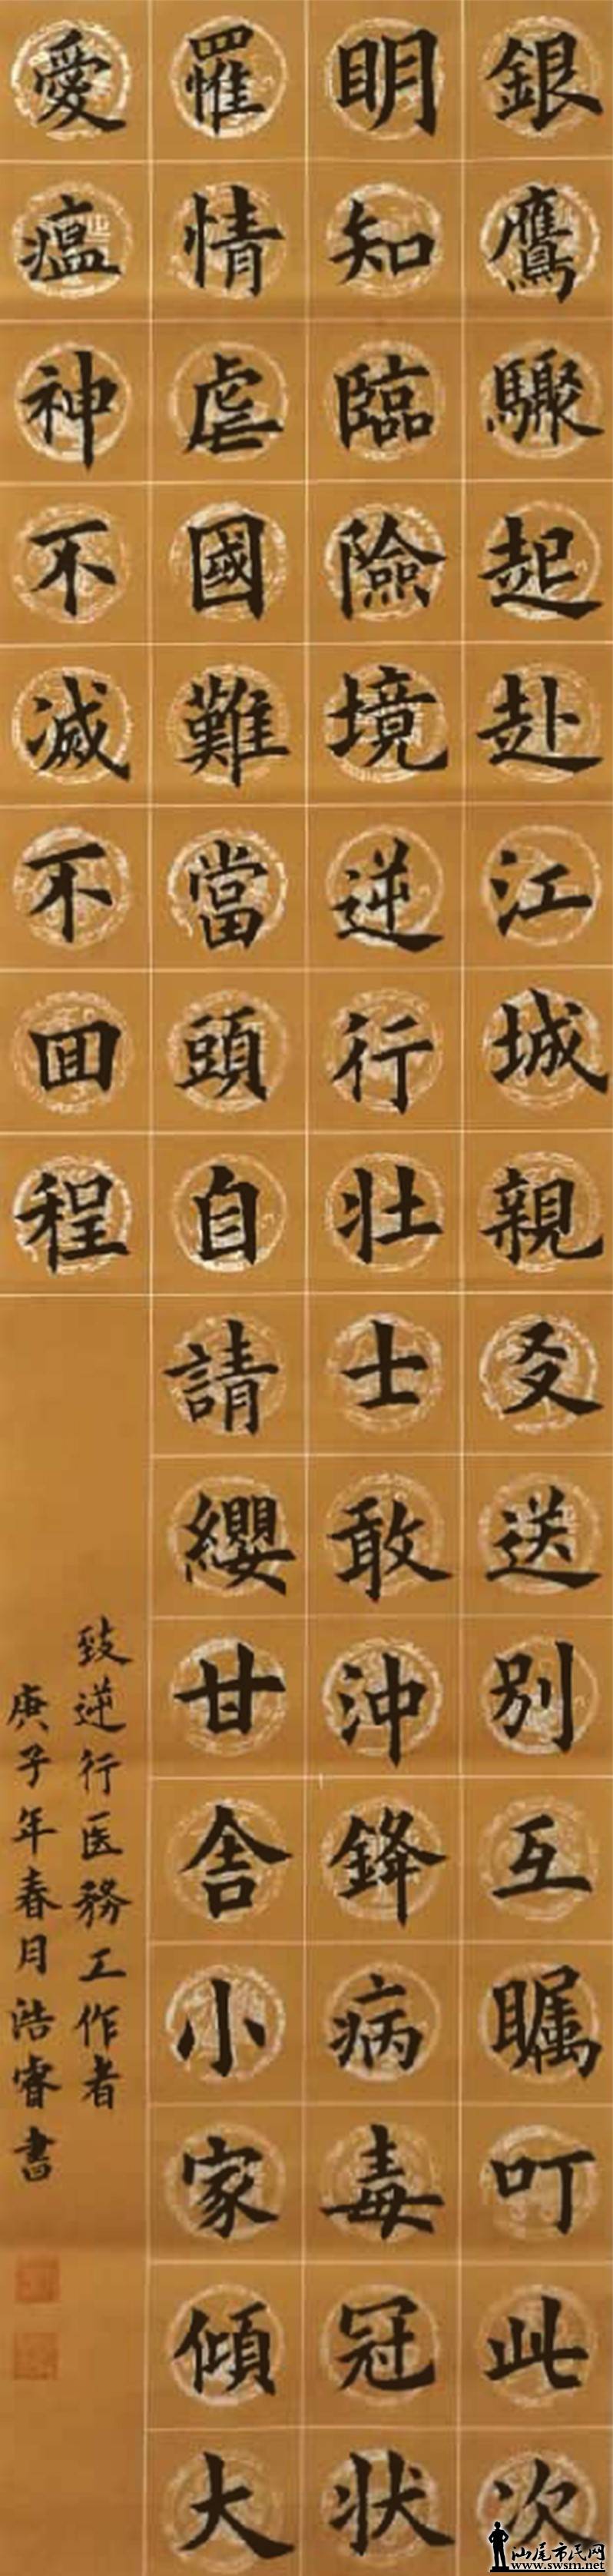 銀鷹驟起赴江城親友送別互瞩叮此次
明知臨險境逆行壮士敢沖鋒病毒冠状
罹情虐國難當頭自請纓甘舍小家傾大
愛瘟神不滅不回程
致逆行医務工作者
庚子年春月浩睿書
汕尾市民网
www.swsm.net